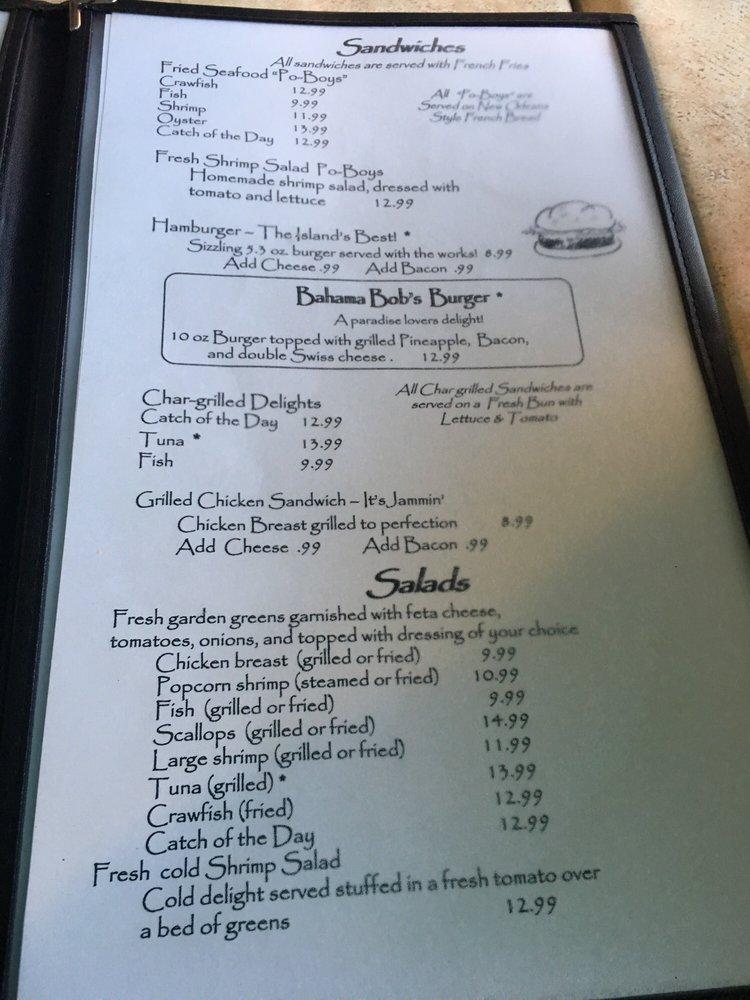 Sandwiches
All sandwiches are served with French Fries
Fried Seafood "Po-Boys"
Crawfish 12.99
Fish 9.99
Shrimp 11.99
Oyster 13.99
Catch of the Day 12.99
All "Po-Boys" are
Served on New Orleans
Style French Bread
Fresh Shrimp Salad Po-Boys
Homemade shrimp salad, dressed with
tomato and lettuce 12.99
Hamburger – The Island's Best! *
Sizzling 5.3 oz. burger served with the works! 8.99
Add Cheese .99 Add Bacon .99
Bahama Bob's Burger *
A paradise lovers delight!
10 oz Burger topped with grilled Pineapple, Bacon,
and double Swiss cheese . 12.99
Char-grilled Delights
Catch of the Day 12.99
Tuna * 13.99
Fish 9.99
All Char grilled Sandwiches are
served on a Fresh Bun with
Lettuce & Tomato
Grilled Chicken Sandwich – It's Jammin'
Chicken Breast grilled to perfection 8.99
Add Cheese .99 Add Bacon .99
Salads
Fresh garden greens garnished with feta cheese,
tomatoes, onions, and topped with dressing of your choice
Chicken breast (grilled or fried) 9.99
Popcorn shrimp (steamed or fried) 10.99
Fish (grilled or fried) 9.99
Scallops (grilled or fried) 14.99
Large shrimp (grilled or fried) 11.99
Tuna (grilled) * 13.99
Crawfish (fried) 12.99
Catch of the Day 12.99
Fresh cold Shrimp Salad
Cold delight served stuffed in a fresh tomato over
a bed of greens 12.99